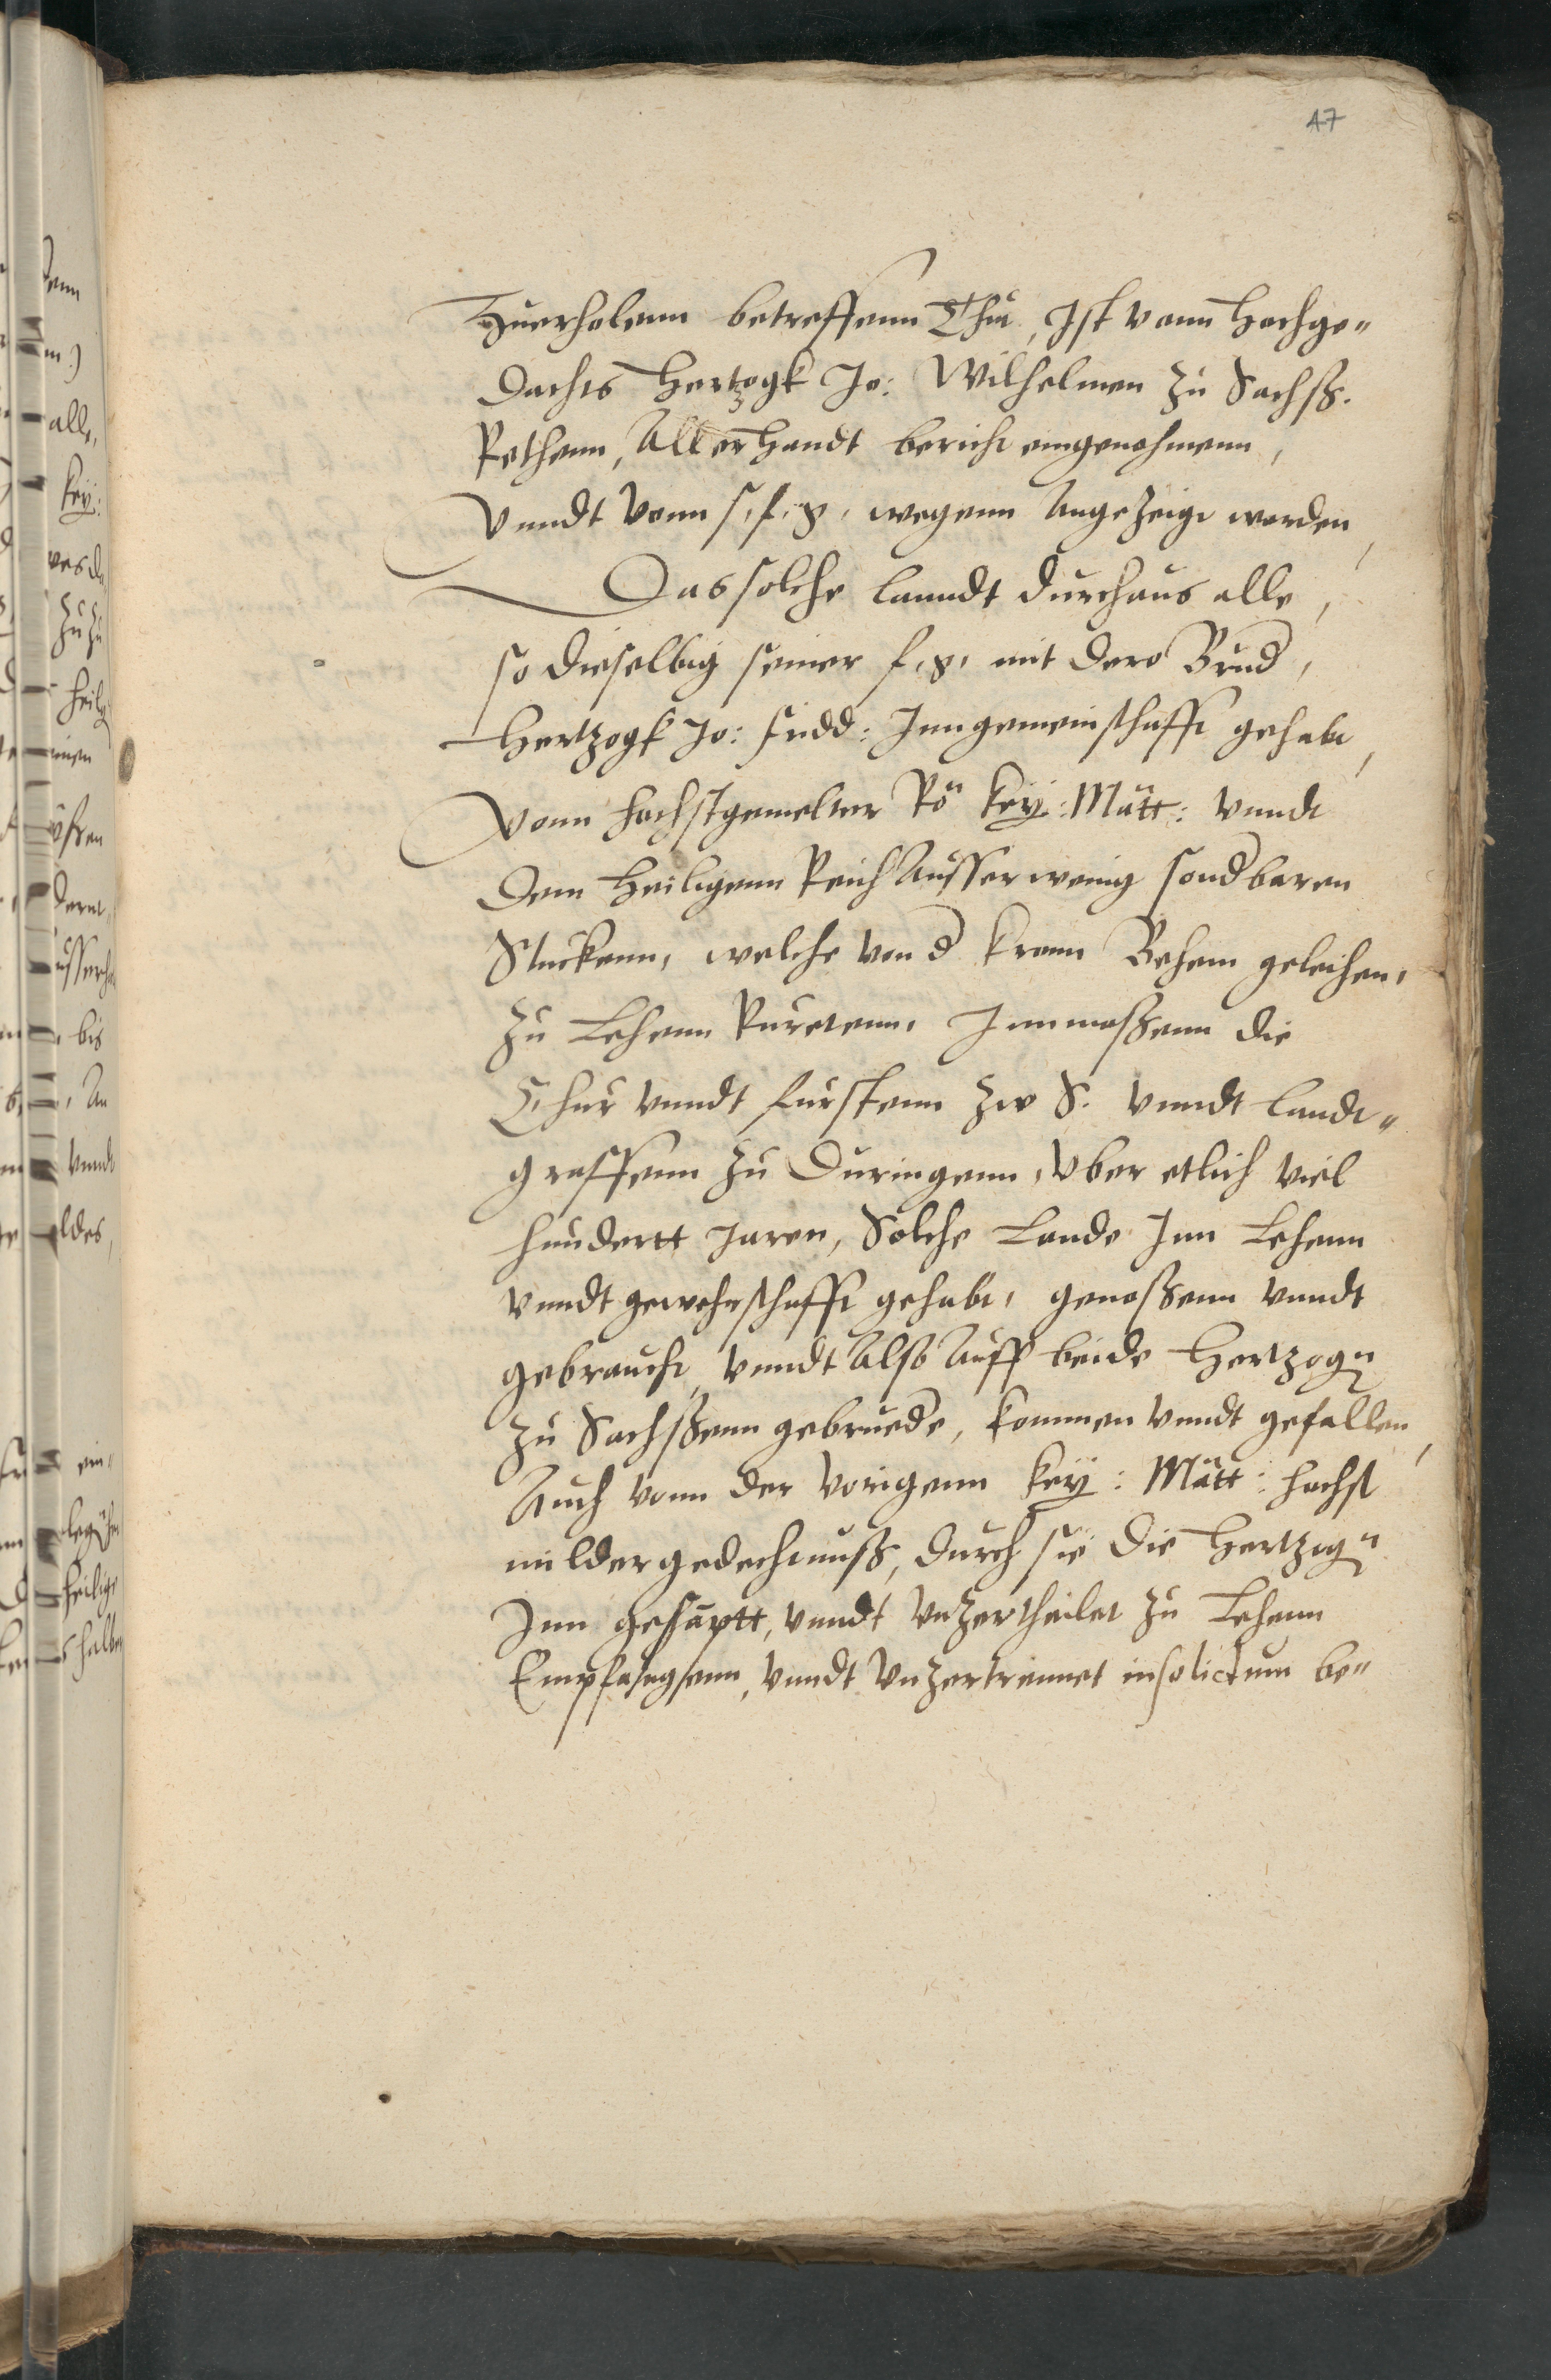 47
Zuerholenn betreffenn Thut, Ist vonn Hochge"
dachts Hertzogk Jo: Wilhelmen zu Sachß.
Rethenn, Allerhandt bericht eingenohmenn,
vnndt vonn s, f, g, wegenn Angezeigt worden,
Das solche lanndt durchaus alle,
so dieselbig seiner f, g, mit dero Brud,
Hertzogk Jo: Fridd: Inngemeinschafft gehabt,
Vonn hochstgemelter Rö Key: Mätt: vnndt
dem Heiligenn Reich Ausserwenig sondbaren
Stuckenn, welche von d Kronn Behem geleihen,
zu Lehenn Ruretenn, Innmaßenn die
Chur vnndt furstenn zw S. vnndt landt"
graffenn zu Duringenn, vber etlich viel
hundertt Jaren, Solche Lande Inn Lehenn
vnndt gewehrschafft gehabt, genoßenn vnndt
gebraucht, vnndt Also Auff beide Hertzogn
zu Sachßenn gebruede, kommen vnndt gefallen,
Auch vonn der vorigenn Key: Mätt: hochst
milder gedechtnuß, durch sie die Hertzign
Inn gesaptt, vnndt vnzertheilet zu Lehenn
Empfahgenn, vnndt vnzertrennet insolictum be"